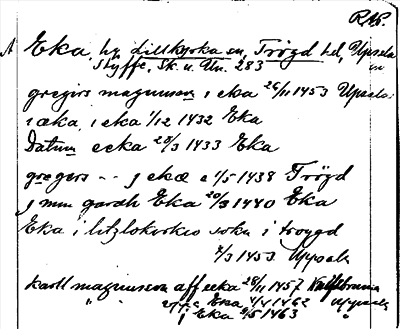 RAP.
Eka, by, Lillkyrka sn, Trögd hd, Upsala
Styffe, Sk. u. Un. 283 län
gregirs magnusson i eka 26/11 1453 Upsala
i æka, i eka 1/12 1432 Eka
Datum eeka 20/3 1433 Eka
gregers - - j ekæ a 1/5 1438 Trögd
j min gardh Eka 20/3 1440 Eka
Eka i litzlokirkio sokn i troygd
4/3 1453 Upsala
karll magnusson aff eeka 28/11 1457
" " Eka 4/4 1462 Upsala
i Eka 9/5 1463